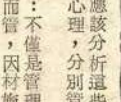 應該分析這些
心理，分別管
：不僅是管理
而管，因材施